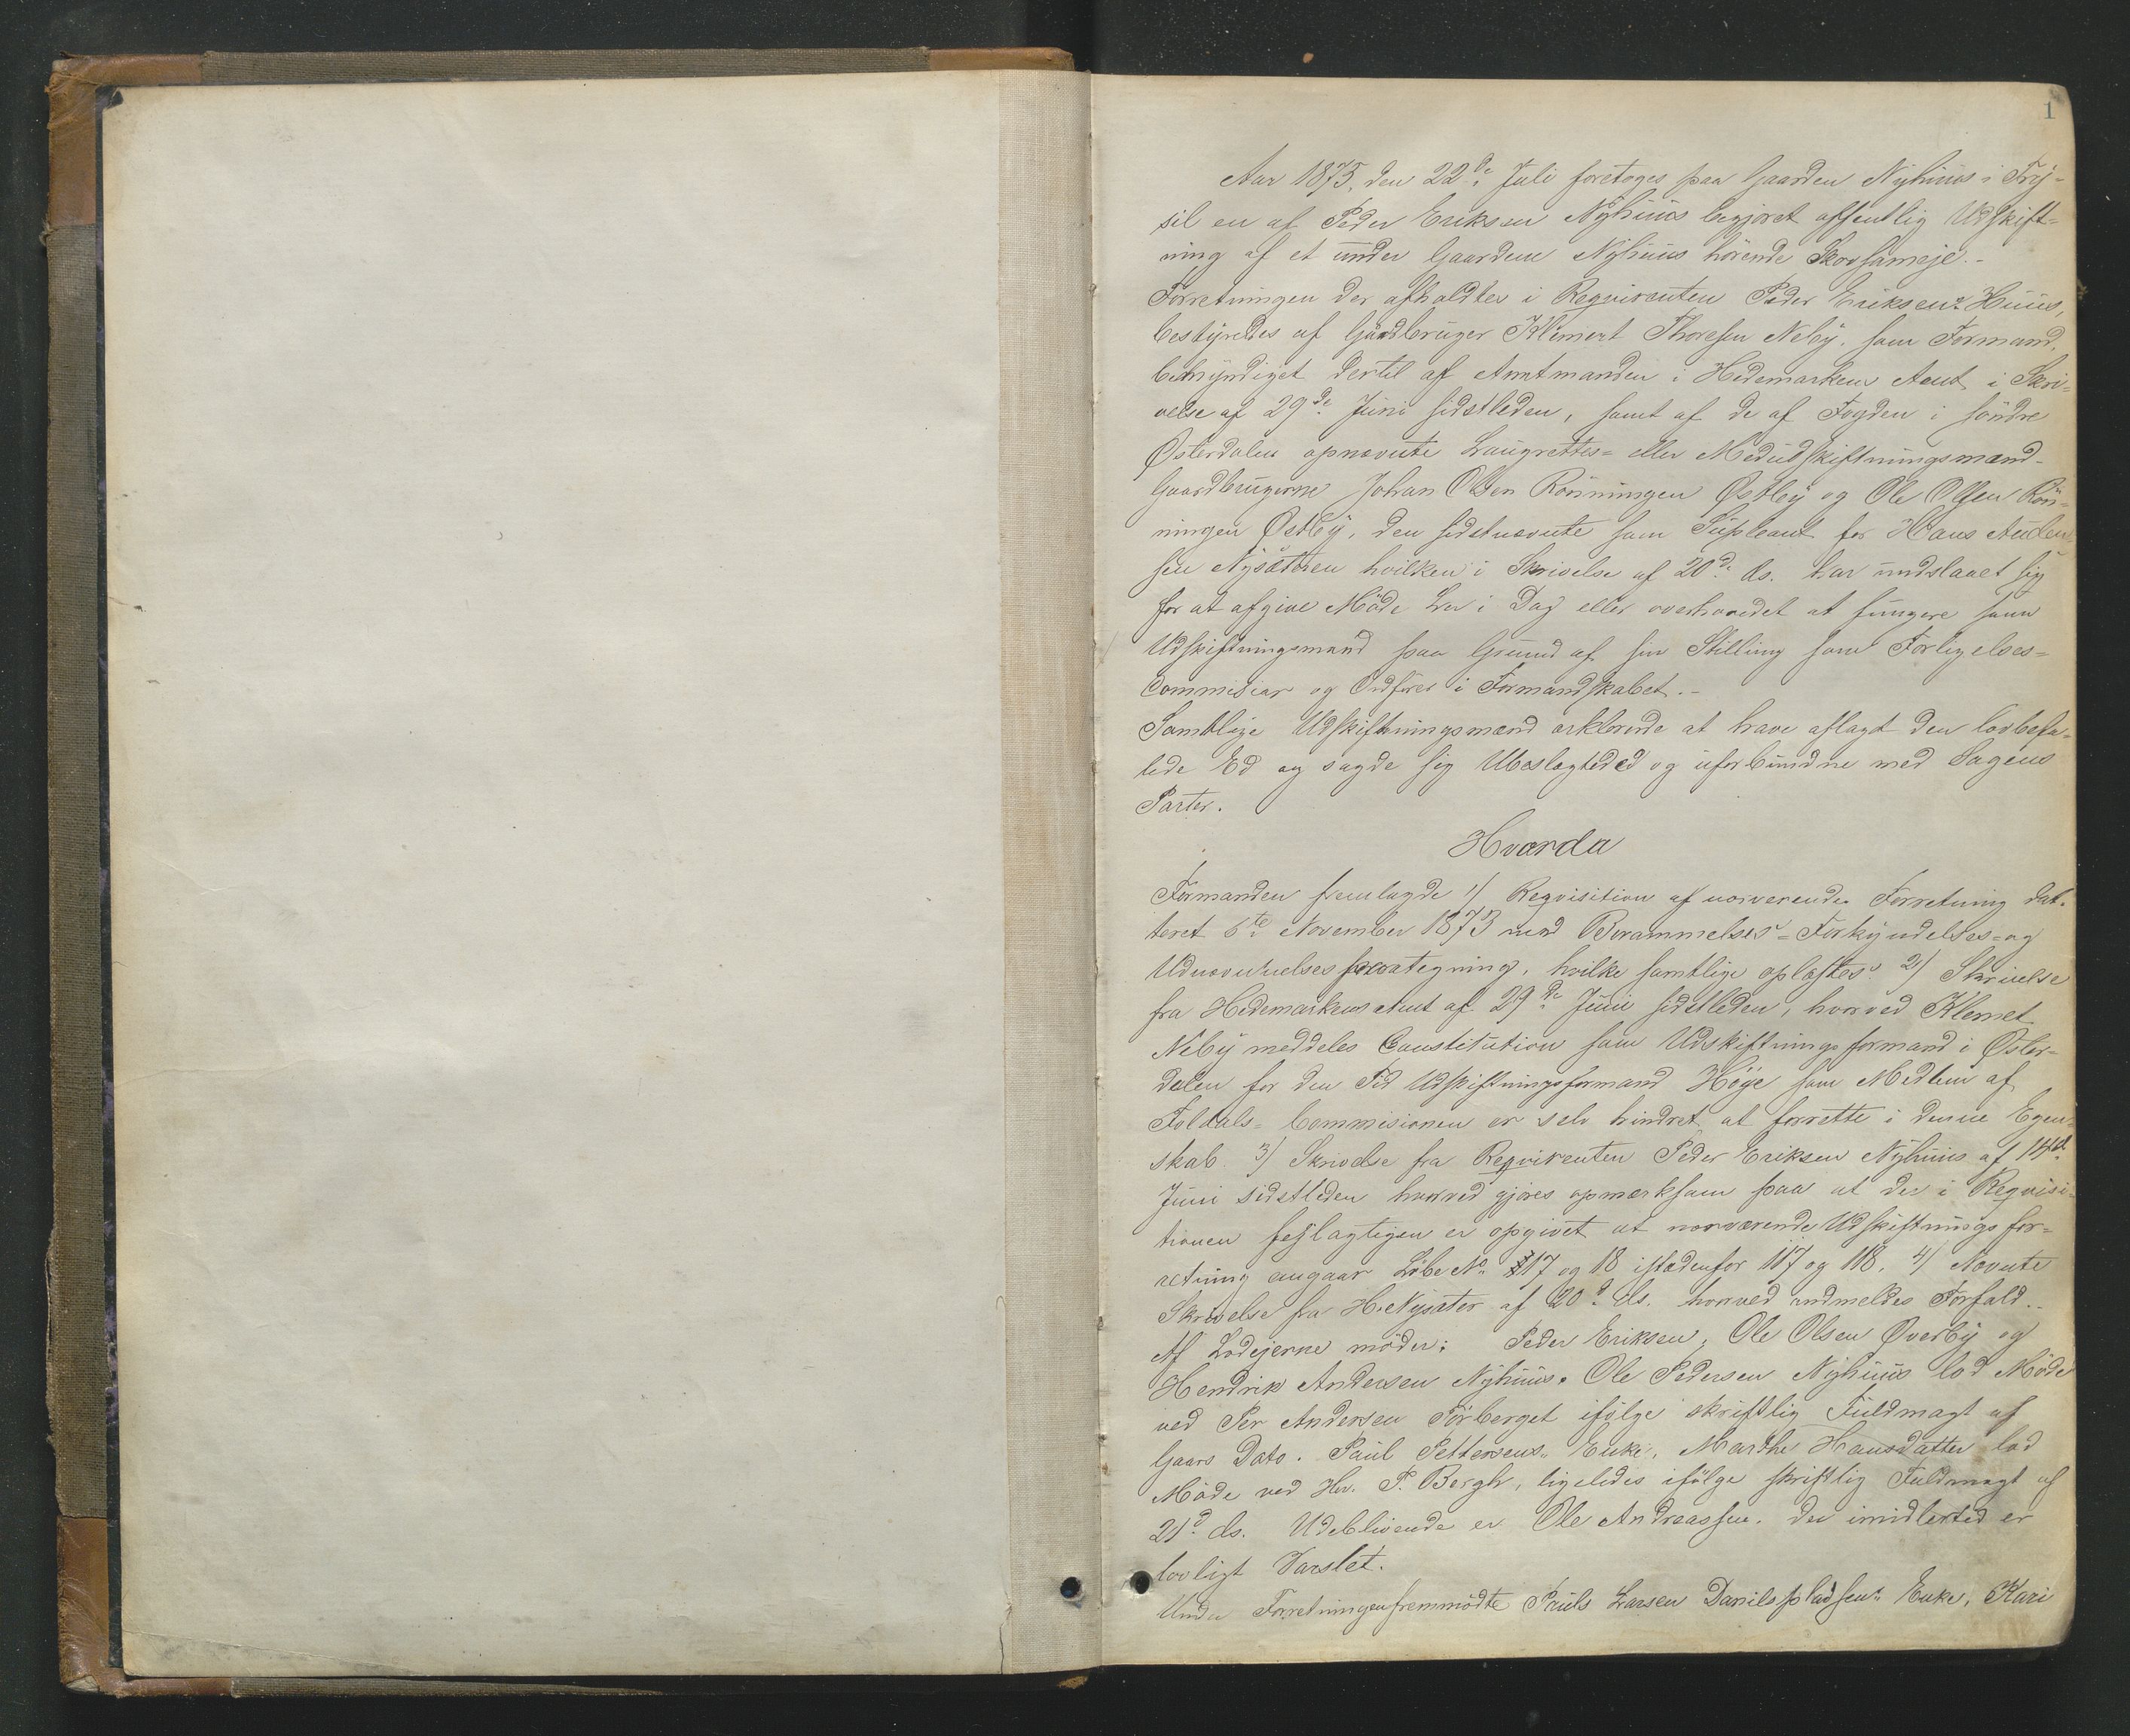 1
Aar 1875, den 22de Juli foretoges paa Gaarden Nyhuus i Try-
sil en af Peder Eriksen Nyhuus begjæret offentlig Udskift-
ning af et under Gaardene Nyhuus hörende Skovsameje.-
Forretningen der afholdtes i Reqvirenten Peder Eriksens Huus,
bestyredes af Gaardbruger Klemert Thoresen Neby, som Formand,
bemyndiget dertil af Amtmanden i Hedemarkens Amt i Skri-
velse af 29de Juni sidstleden, samt af de af Fogden i söndre
Østerdalen opnævnte Laugrettes- eller Medudskiftningsmænd-
Gaardbrugerne Johan Olsen Rönningen Østby og Ole Olsen Rön-
ningen Østby, den sidstnævnte som Supleant for Hans Anden-
sen Nysäteren hvilken i Skrivelse af 20d ds. har undslaaet sig
for at afgive Möde her i Dag eller overhovedet at fungere som
Udskiftningsmand paa Grund af sin Stilling som Forligelses-
Commisiær og Ordförer i Formandskabet.-
Samtlige Udskiftningsmænd erklærende at have aflagt den lovbefa-
lede Ed og sagde sig Ubeslægtded og uforbundne med Sagens
Parter.
Hvorda
Formanden fremlagde 1/ Reqvisition af nærværende Forretning dat-
teret 6te November 1873 med Berammelses- Forkyndelses- og
Udnævnelsespaategning, hvilke samtlige oplæstes. 2/ Skrivelse
fra Hedemarkens Amt af 29de Juni sidstleden, hvorved Klemet
Neby meddeles Constitution som Udskiftningsformand i Øster-
dalen for den Tid Udskiftningsformand Höye som Medlem af
Foldals- Commisionen er selv hindret at forrette i denne Egen-
skab. 3/ Skrivelse fra Reqvirenten Peder Eriksen Nyhuus af 14d
Juni sidstleden hvorved gjöres opmærksom paa at der i Reqvisi-
tionen fejlagtigen er opgivet at nærværende Udskiftningsfor-
retning angaar Löbe No 17 og 18 istedenfor 117 og 118. 4/ Nævnte
Skrivelse fra H. Nysäter af 20d ds. hvorved anmeldes Forfald.-
Af Lodejerne möder: Peder Eriksen, Ole Olsen Øverby og
Hendrik Andersen Nyhuus. Ole Pedersen Nyhuus lod Möde
ved Per Andersen Törberget ifölge skriftlig Fuldmagt af
Gaars Dato. Paul Pettersens Enke, Marthe Hansdatter lod
Möde ved Hr. P. Bergh, ligeledes ifölge skriftlig Fuldmagt af
21d ds. Udeblivende er Ole Andreassen. der imidlertid er
lovligt Varslet.
Under Forretningen fremmödte Pauls Larsen Danilspladsens Enke, Kari